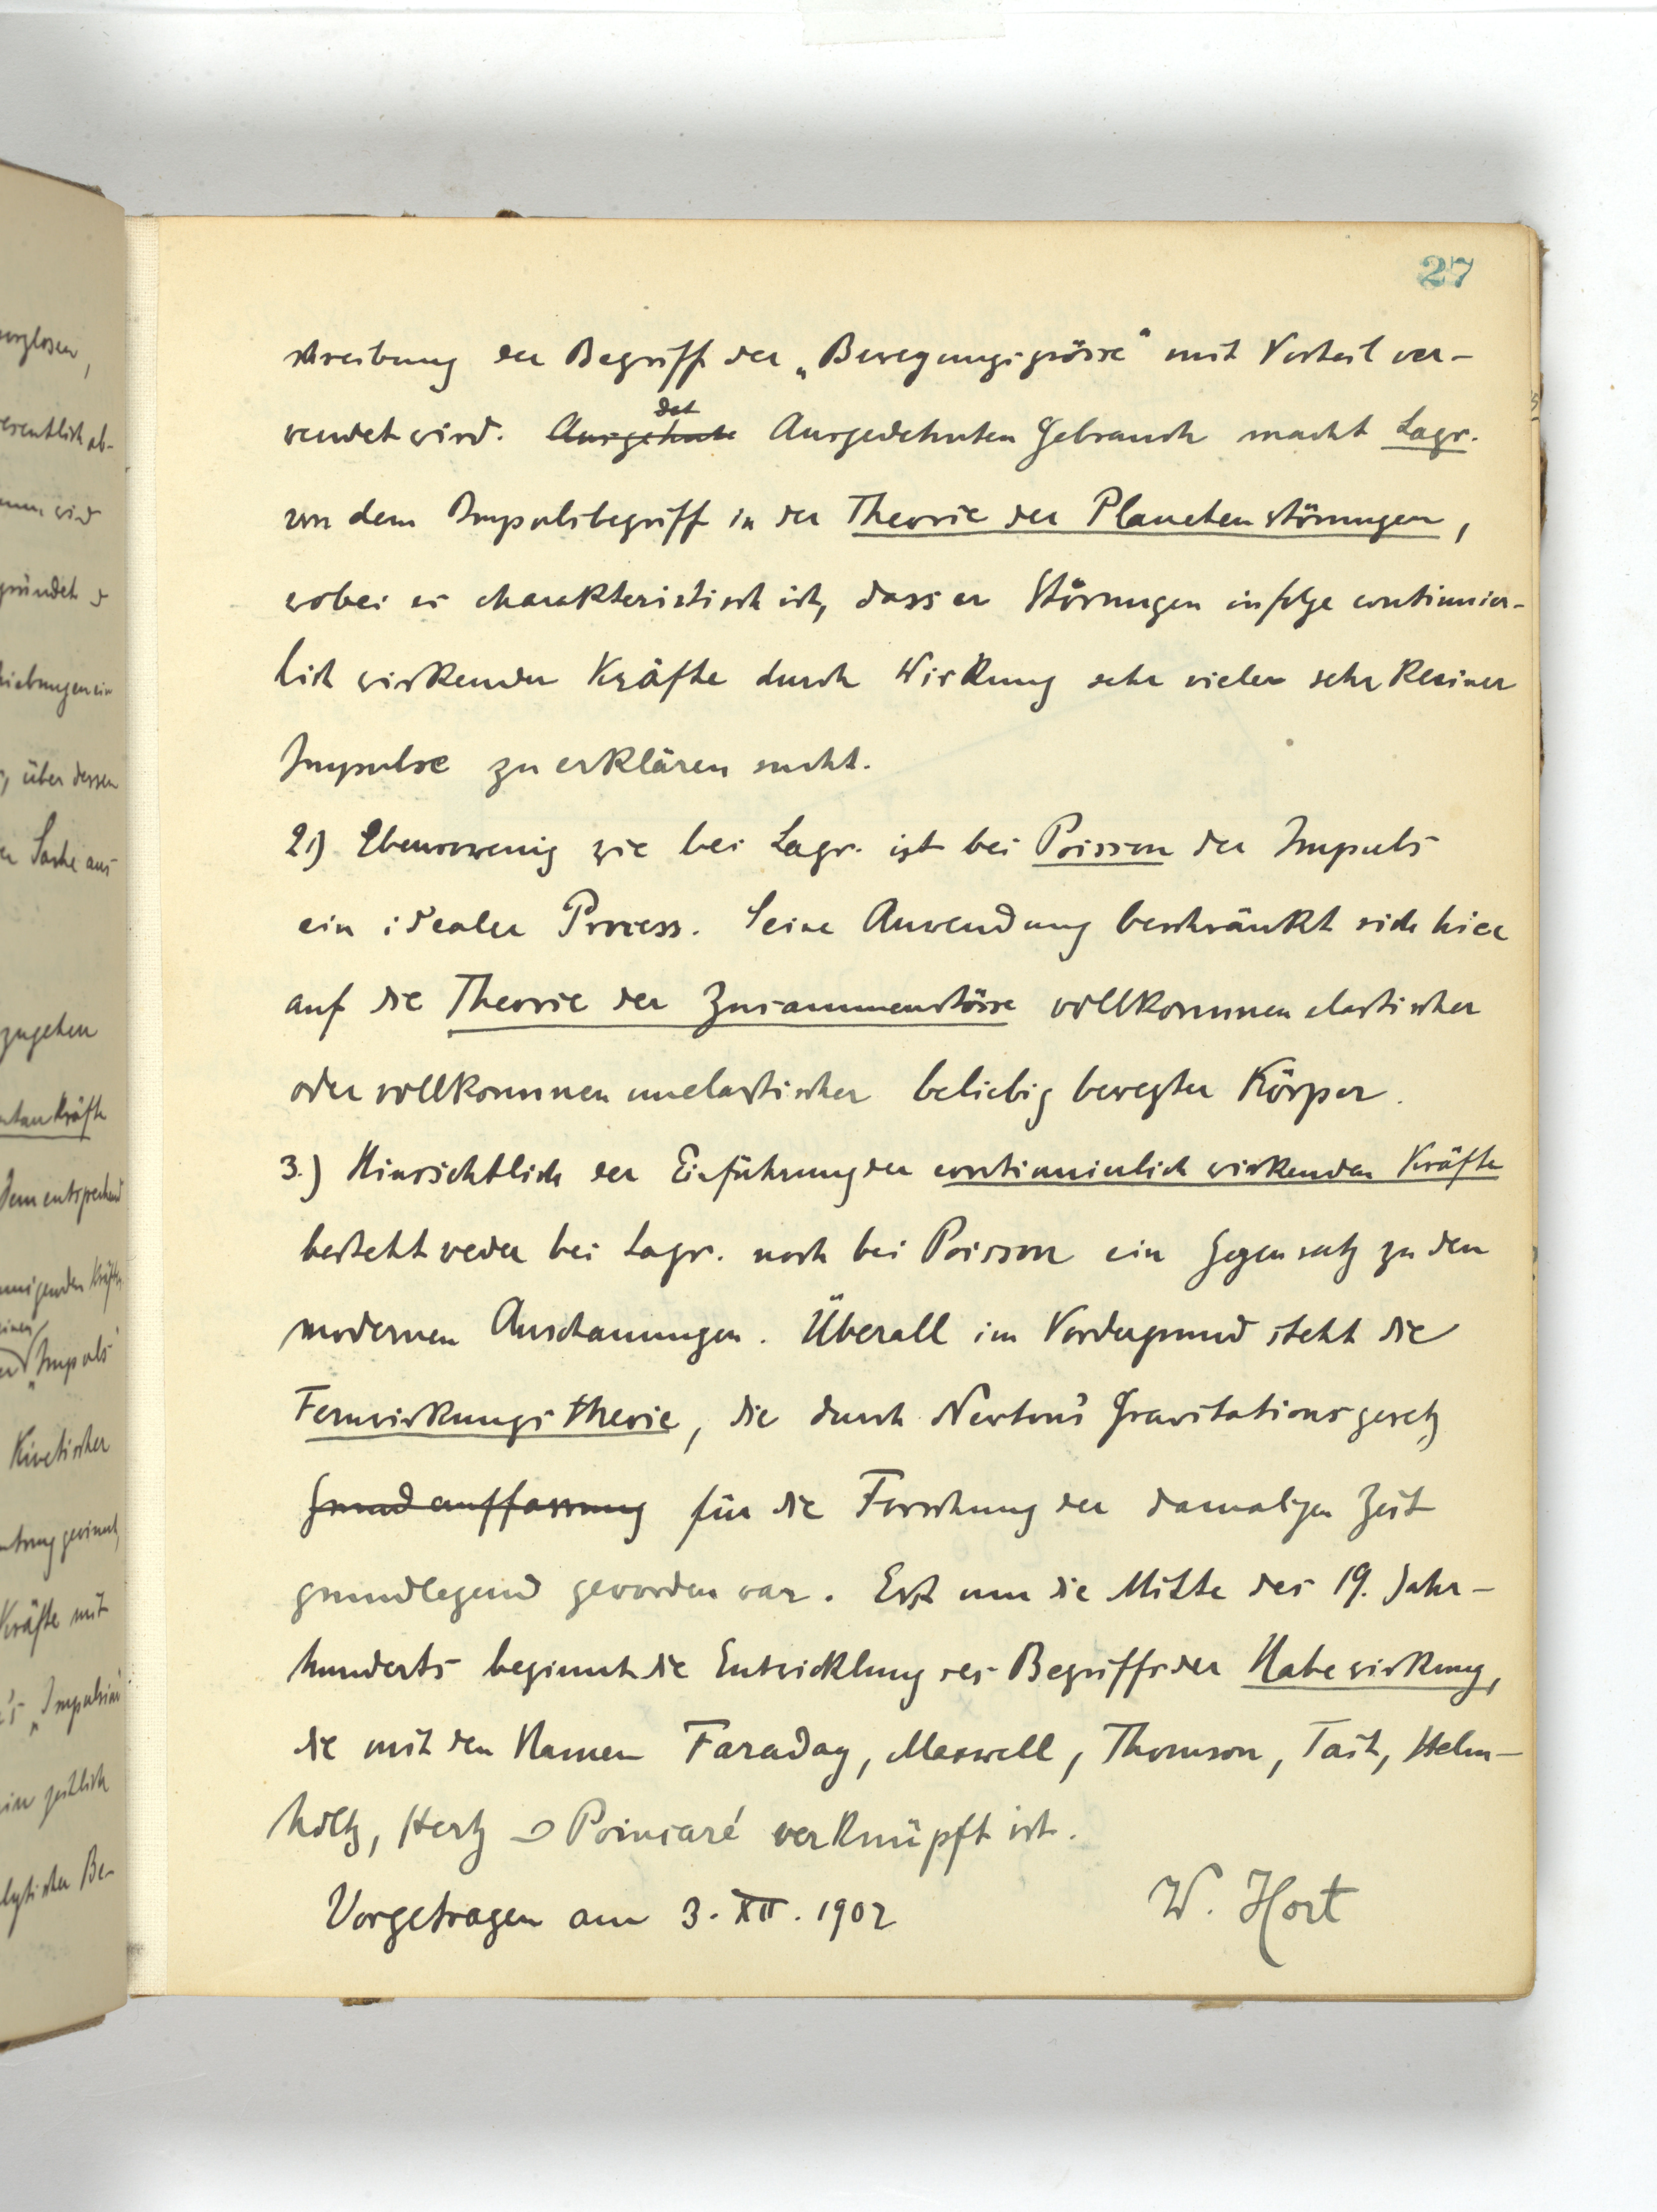 27
schreibung der Begriff der „Bewegungsgrösse“ mit Vorteil ver-
wendet wird. Ausgedehnte Ausgedehnten Gebrauch macht Lagr.
von dem Impulsbegriff in der Theorie der Planetenstörungen,
wobei es charakteristisch ist, dass er Störungen infolge continuier-
lich wirkender Kräfte durch Wirkung sehr vieler sehr kleiner
Impulse zu erklären sucht.
2.) Ebensowenig wie bei Lagr. ist bei Poisson der Impuls
ein idealer Process. Seine Anwendung beschränkt sich hier
auf die Theorie der Zusammenstösse vollkommen elastischer
oder vollkommen unelastischer beliebig bewegter Körper.
3.) Hinsichtlich der Einführung der continuierlich wirkenden Kräfte
besteht weder bei Lagr. noch bei Poisson ein Gegensatz zu den
modernen Anschauungen. Überall im Vordergrund steht die
Fernwirkungstheorie, die durch Newton's Gravitationsgesetz
Grundauffassung für die Forschung der damaligen Zeit
grundlegend geworden war. Erst um die Mitte des 19. Jahr-
hunderts beginnt die Entwicklung des Begriffs der Nahewirkung,
die mit den Namen Faraday, Maxwell, Thomson, Tait, Helm-
holtz, Hertz u Poincaré verknüpft ist.
Vorgetragen am 3. XII. 1902
W. Hort